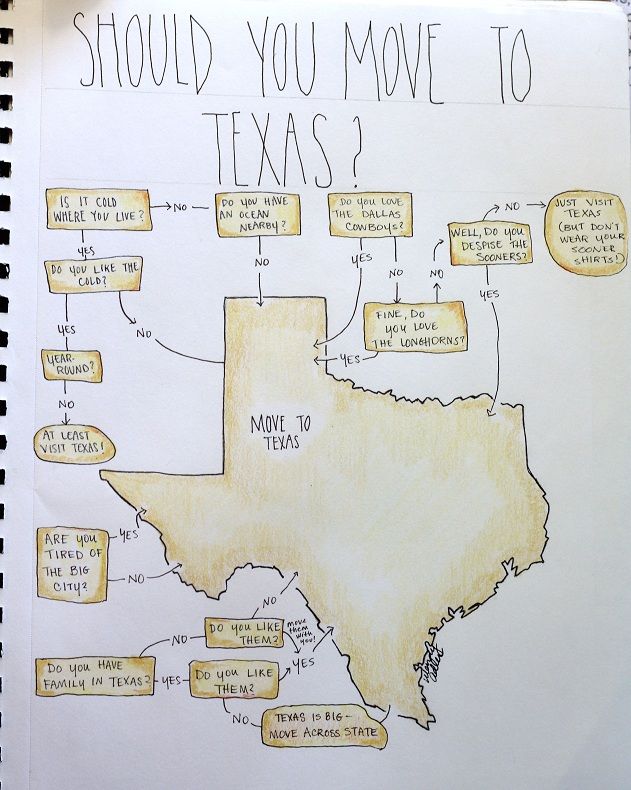 SHOULD YOU MOVE TO
TEXAS?
IS IT COLD
WHERE YOU LIVE?
NO
DO YOU HAVE
AN OCEAN
NEARBY?
DO YOU LOVE
THE DALLAS
COWBOYS?
WELL, DO YOU
DESPISE THE
SOONERS?
NO
JUST VISIT
TEXAS
(BUT DON'T
WEAR YOUR
SOONER
SHIRTS!)
YES
NO
YES
NO
NO
YES
DO YOU LIKE THE
COLD?
YES
NO
FINE, DO
YOU LOVE
THE LONGHORNS?
YES
YEAR-
ROUND?
NO
AT LEAST
VISIT TEXAS!
MOVE TO
TEXAS
ARE YOU
TIRED OF
THE BIG
CITY?
YES
NO
DO YOU HAVE
FAMILY IN TEXAS?
NO
DO YOU LIKE
THEM?
NO
move
them
with
you!
YES
YES
DO YOU LIKE
THEM?
NO
TEXAS IS BIG-
MOVE ACROSS STATE